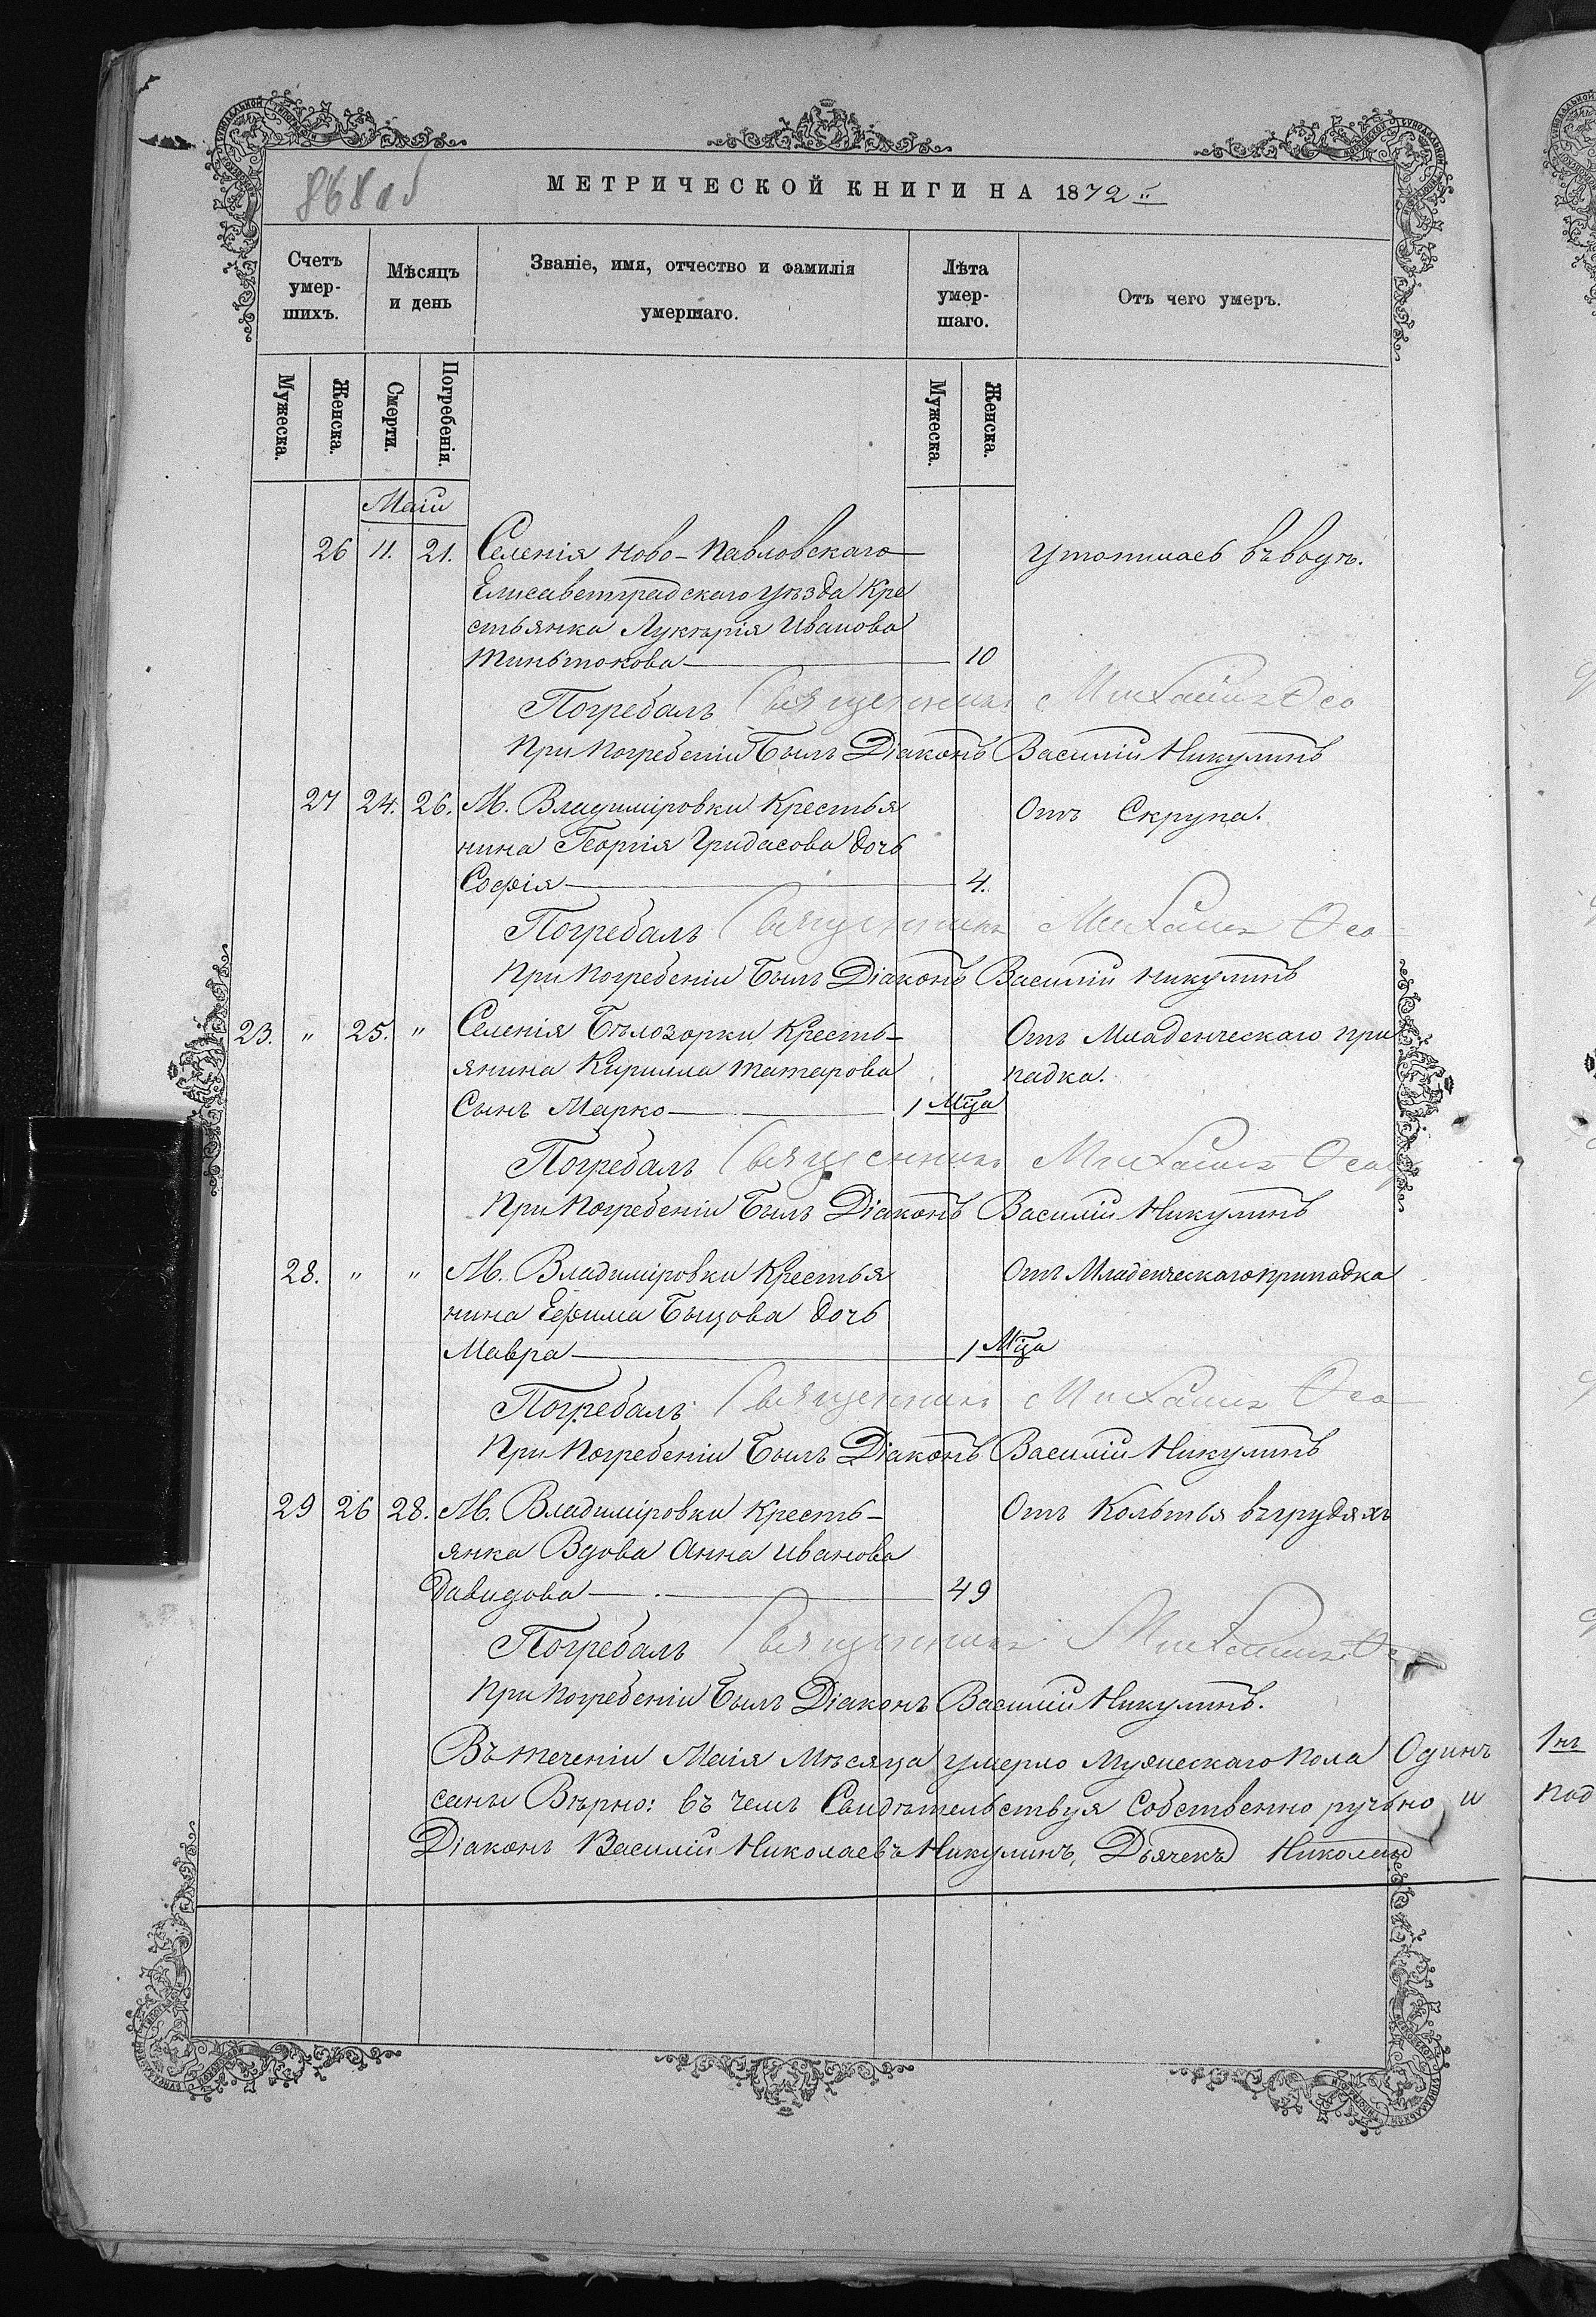 868 об
МЕТРИЧЕСКОЙ КНИГИ НА 1872 й
Счетъ умер-шихъ.
Мѣсяцъ и день
Званіе, имя, отчество и фамилія умершаго.
Лѣта умер-шаго.
Отъ чего умеръ.
Мужеска.
Женска.
Смерти.
Погребенія.
Мужеска.
Женска.
Маій
26 11. 21. Селенія Ново-Павловскаго Утопилась въ водѣ.
Елисаветградскаго уѣзда Кре
стьянка Лукерія Иванова
10
Погребалъ Священникъ Михаилъ Осо
При Погребеніи Былъ Діаконъ Василій Никулинъ
27 24. 26. М. Владиміровки Крестья Отъ Скрупа.
нина Георгія Гридасова дочь
Софія 4.
Погребалъ Священникъ Михаилъ Осо
При Погребеніи Былъ Діаконъ Василій Никулинъ
23. " 25. " Селенія Бѣлозорки Кресть- Отъ Младенческаго при
янина Кирилла Татарова падка.
Сынъ Марко 1 Мца
Погребалъ Священникъ Михаилъ Осо
При Погребеніи Былъ Діаконъ Василій Никулинъ
28. " " М. Владиміровки Крестья Отъ Младенческаго припадка
нина Ефима дочь
Мавра 1 Мца
Погребалъ Священникъ Михаилъ Осо
При Погребеніи Былъ Діаконъ Василій Никулинъ
29 26 28. М. Владиміровки Кресть- Отъ Колотья въ грудяхъ
янка Вдова Анна Иванова
Давидова 49
Погребалъ Священникъ Михаилъ Осо
При Погребеніи Былъ Діаконъ Василій Никулинъ.
Въ теченіи Маія Мѣсяца умерло Мужескаго Пола Одинъ
Вѣрно: въ чемъ Свидѣтельствуя Собственно ручьно и
Діаконъ Василій Николаевъ Никулинъ, Дьячекъ Николай
под